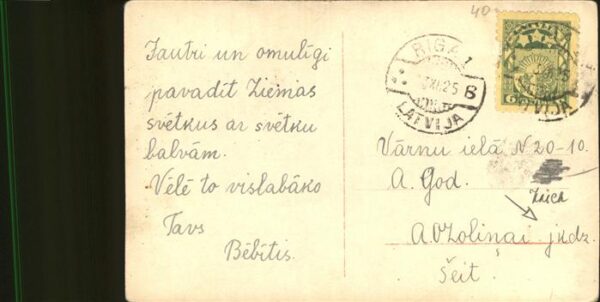 Jautri un omulīgi
pavadīt Ziemas
svētkus ar svētku
balvām.
Vēlē to vislabāko
Tavs
Bēbītis.
40
RIGA 1
XII 25
B
LATVIJA
6
LATVIJA
Vārnu ielā N 20-10.
A. God.
A. Ozoliņai jkdz.
Šeit.